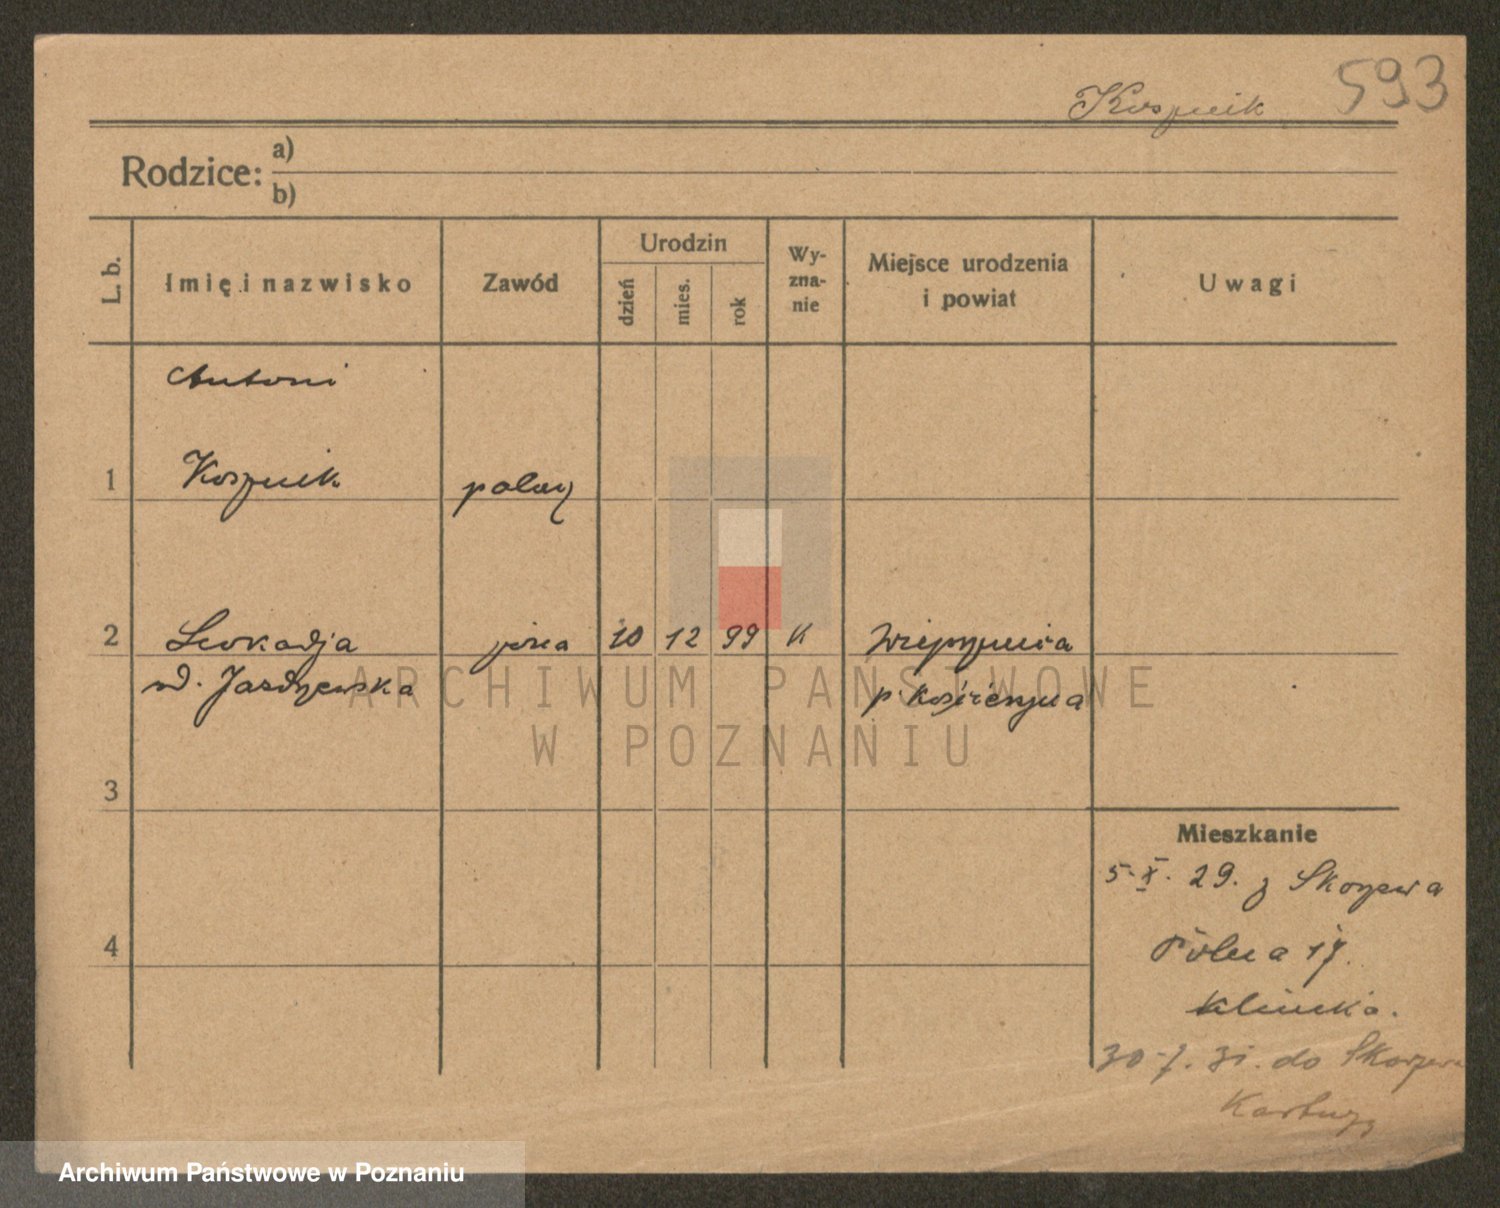 593
Kospnik
Rodzice: a)
b)
L. b.
Imię i nazwisko
Zawód
Urodzin
dzień
mies.
rok
Wy-
zna-
nie
Miejsce urodzenia
i powiat
Uwagi
Antoni
1 Kospnik
2 Leokadja żona 10 12 99 K
p. Kościerzyna
3
4
Mieszkanie
5.X.29. z Skorzewa
Polna 17.
30.7.31. do Skorzewa
Kartuzy
ARCHIWUM PAŃSTWOWE
W POZNANIU
Archiwum Państwowe w Poznaniu